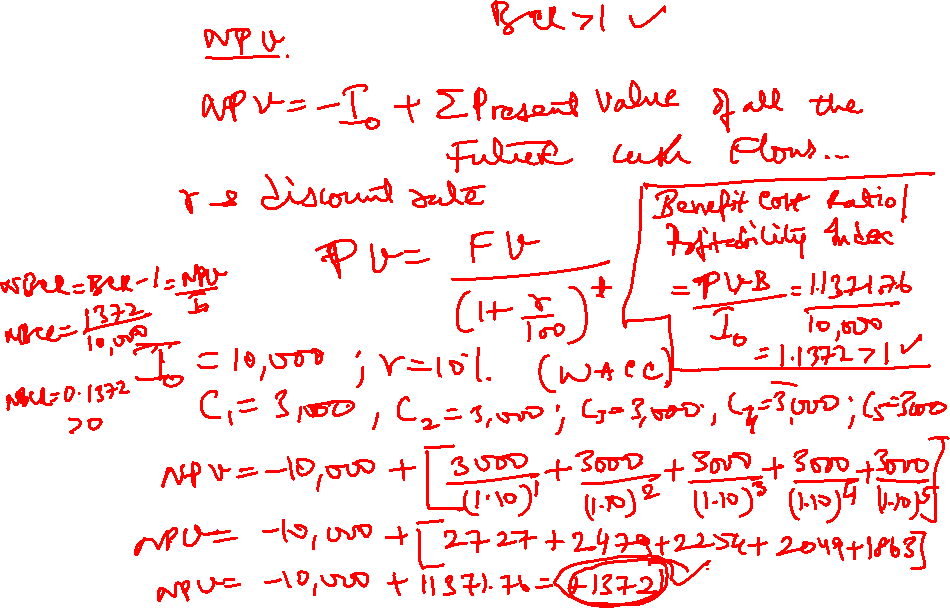 BCR > 1 ✓
NPV.
NPV = -I₀ + Σ Present Value of all the
Future cash flows...
r → discount rate
PV = FV / (1 + r/100)^t
Benefit Cost Ratio /
Profitability Index
= PVB / I₀ = 11371.76 / 10,000
= 1.1372 > 1 ✓
NBCR = BCR - 1 = NPV / I₀
NBCR = 1372 / 10,000
NBCR = 0.1372
> 0
I₀ = 10,000 ; r = 10%. (WACC)
C₁ = 3,000 , C₂ = 3,000 ; C₃ = 3,000 , C₄ = 3,000 ; C₅ = 3000
NPV = -10,000 + [3000/(1.10)^1 + 3000/(1.10)^2 + 3000/(1.10)^3 + 3000/(1.10)^4 + 3000/(1.10)^5]
NPV = -10,000 + [2727 + 2479 + 2254 + 2049 + 1863]
NPV = -10,000 + 11371.76 = +1372 ✓